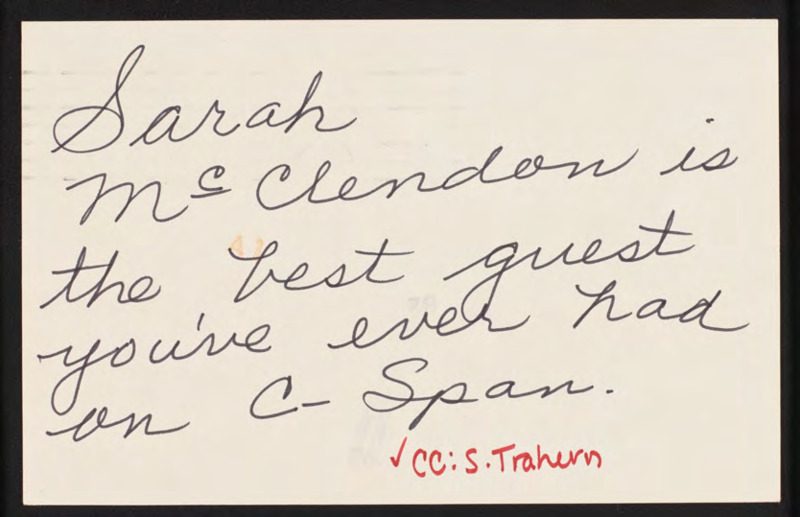 Sarah
McClendon is
the best guest
you've ever had
on C-Span.
✓CC: S. Trahern